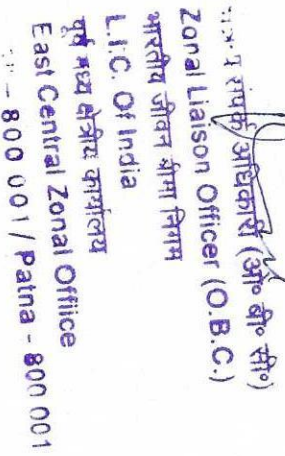 संपर्क अधिकारी (ओ० बी० सी०)
Zonal Liaison Officer (O.B.C.)
भारतीय जीवन बीमा निगम
L.I.C. Of India
पूर्व मध्य क्षेत्रीय कार्यालय
East Central Zonal Offiice
- 800 001 / Patna - 800 001